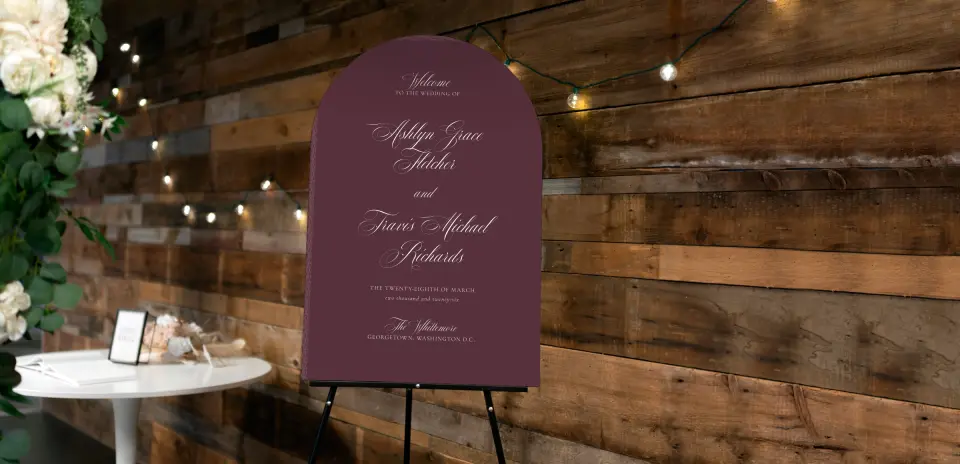 Welcome
TO THE WEDDING OF
Ashlyn Grace
Fletcher
and
Travis Michael
Richards
THE TWENTY-EIGHTH OF MARCH
two thousand and twenty-six
The Whittemore
GEORGETOWN, WASHINGTON D.C.